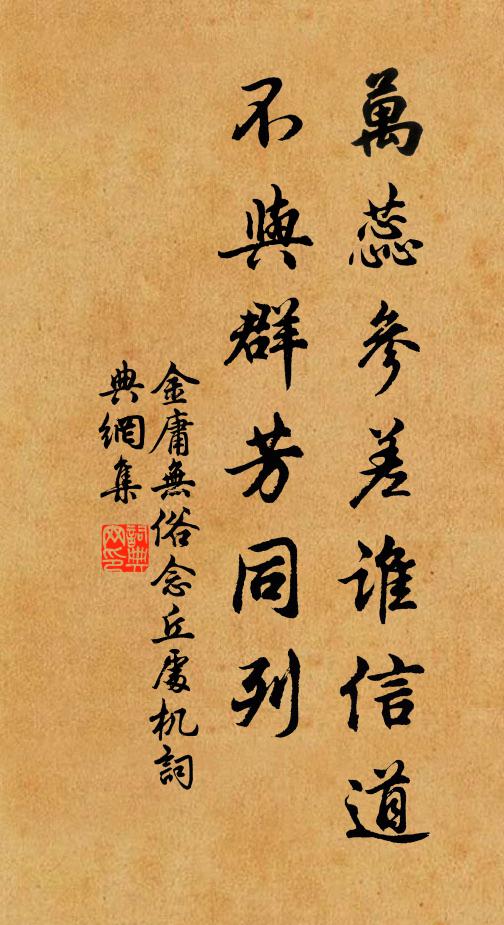 萬蕊參差誰信道
不與群芳同列
金庸無俗念丘處机詞
典網集
詞典網印